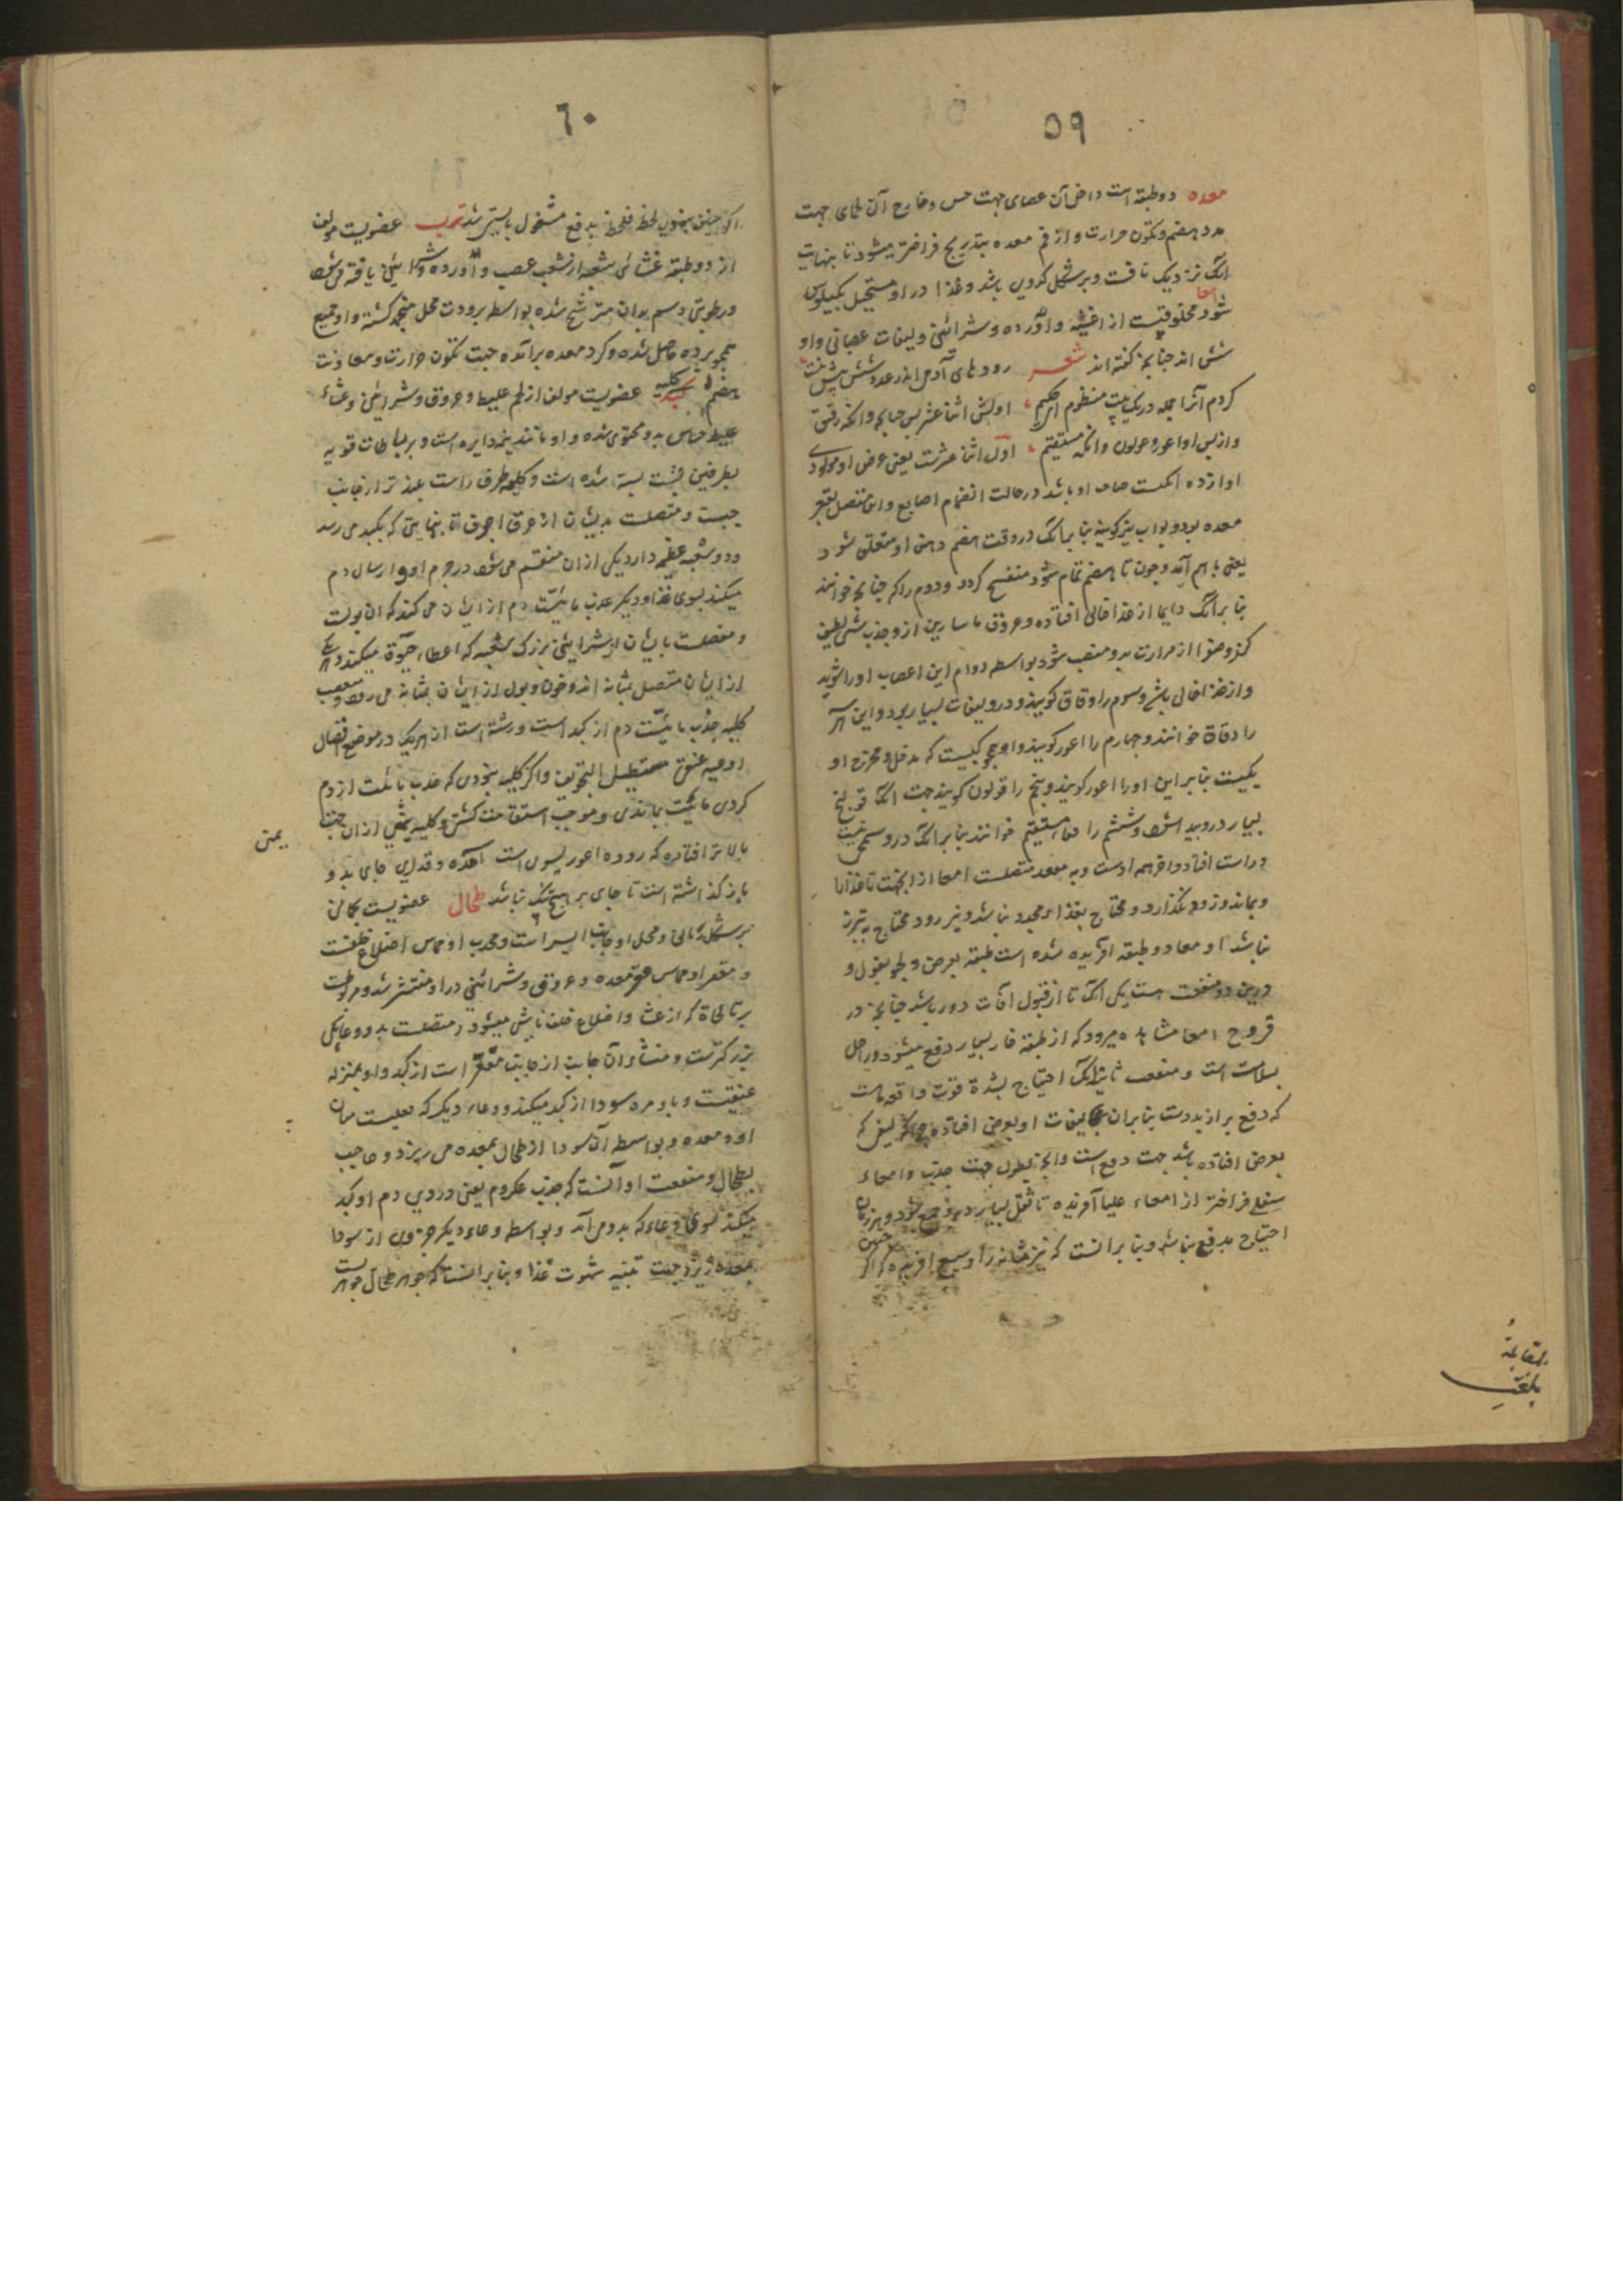 ٥٩
معده دو طبقه است داخل آن عصبای جهت حس و خارج آن لحمای جهت
مدد هضم و تکون حرارت و از فم معده بتدریج فراختر میشود تا بنهایت
آنک نزدیک نافست و بر شکل کدویی باشد و غذا در او مستحیل بکیلوس
شود امعا مخلوقیست از اغشیه و آورده و شرائین و لیفات عصبانی و او
شش اند چنانچه گفته اند شعر رودهای آدمی اندر عدد شش بیش نیست
کردم آنرا جمله در یک بیت منظوم ای حکیم اولش اثنا عشر پس صایم و آنکه دقیق
و از پس او اعور و قولون و آنکه مستقیم اول اثنا عشرست یعنی عرض او موازی
دوازده انگشت صاحب او باشد در حالت انضمام اصابع و این متصل بقعر
معده بود و بواب نیز گویند بنا بر آنک در وقت هضم دهن او متعلق شود
یعنی باهم آید و چون تا هضم تمام شود منفتح گردد و دوم را که صایم خوانند
بنا بر آنک دایما از غذا خالی افتاده و عروق ماساریقا از و جذب شیء لطیف
کند و صفرا از مرارت بدو منصب شود بواسطه دوام این اعصاب او را شوید
و از غذا خالی باشد و سوم را دقاق گویند و درو لیفات بسیار بود و این هر
را دقاق خوانند و چهارم را اعور گویند و او چو کیسیست که مدخل و مخرج او
یکیست بنا بر این او را اعور گویند و پنجم را قولون گویند جهت آنک قولنج
بسیار درو پیدا شود و ششم را معاء مستقیم خوانند بنا بر آنک درو کجی نیست
و راست افتاده و آخر همه اوست و به مقعد متصلست امعا از آن جهت تا غذا
و بماند و زود نگذارد و محتاج بغذاء مجدد نباشد و نیز زود محتاج به تبرز
نباشد و معا دو طبقه آفریده شده است طبقه بعرض و یکی بطول و
درین دو منفعت است یکی آنک تا از قبول آفات دور باشد چنانچه در
قروح امعا مشاهده میرود که از طبقه خار بسیار دفع میشود و داخل
بسلامت است و منفعت ثانیه آنک احتیاج بشدة قوت دافعه هست
که دفع براز بدوست بنا بر آن لیفات او بعرض افتاده چه هر لیفی که
بعرض افتاده باشد جهت دفع است و آنچه بطول جهت جذب و امعاء
سفلی فراختر از امعاء علیا آفریده تا ثقل بسیار درو جمع شود و هر زمان
احتیاج بدفع نباشد و بنا بر آنست که نیز مثانه را وسیع آفریده که اگر چنین
بلغت
مقابلة
٦٠
اگر چنین نبودی لحظه فلحظه بدفع مشغول بایستی شد ثرب عضویست مولف
از دو طبقه غشائی شعبه از شعب عصب و آورده و شرائین یافته می شود
و رطوبتی دسم بدان مترشح شده بواسطه برودت محل منجمد گشته و او جمیع
همچو پرده حاصل شده و گرد معده برآمده جهت تکون حرارت و معاونت
هضم کلیه عضویست مولف از لحم غلیظ و عروق و شرائین و غشاء
غلیظ حساس بدو محتوی شده و او مانند نیم دایره است و برباطات قویه
بطرفین پشت بسته شده است و کلیه طرف راست بلندتر از جانب
چپست و متصلست بدیشان از عرق اجوف تا بنهایتی که بکبد می رسد
و دو شعبه عظیمه دارد یکی از آن منقسم می شود در جرم او و ارسال دم
میکند بسوی غذا و دیگر جذب مائیت دم از ایشان می کند که آن بولست
و متصلست بایشان از شرائین بزرگ شعبه که اعطاء حیوة میکند و هر یکی
از ایشان متصل بمثانه اند و خون و بول از ایشان بمثانه می رود و منفعت
کلیه جذب مائیت دم از کبد است و رسته است از هر یک در موضع اتصال
اوعیه عنق مستطیل التجویف و اگر کلیه نبودی که جذب مائیت از دم
کردی مائیت بماندی و موجب استسقا گشتی و کلیه یمنی از آن جهت
بالاتر افتاده که روده اعور بسوی است آمده و قدری جای بدو
باز گذاشته است تا جای بر هیچ تنگ نباشد طحال عضویست لحمانی
بر شکل زبانی و محل او جانب ایسر است و محدب او مماس اضلاع خلفست
و مقعر او مماس معده و عروق و شرائینی در او منتشر شده و مربوطست
برباطاة که از غشا و اضلاع خلف ناشی میشود و متصلست بدو وعا یکی
بزرگترست و منشاء آن جانب از جانب مقعر است از کبد و او بمنزله
عنقیست و با و مره سودا از کبد میکند و وعاء دیگر که بعلیست میان
او و معده و بواسطه آن سودا از طحال بمعده می ریزد و حاجب
بطحال و منفعت او آنست که جذب عکر دم یعنی دردی دم او کبد
میکند بسوی وعاء که بدو می آید و بواسطه وعاء دیگر جزوی از سودا
بمعده ریزد جهت تنبیه شهوت غذا و بنا بر آنست که جوهر طحال جوهریست
یمنی